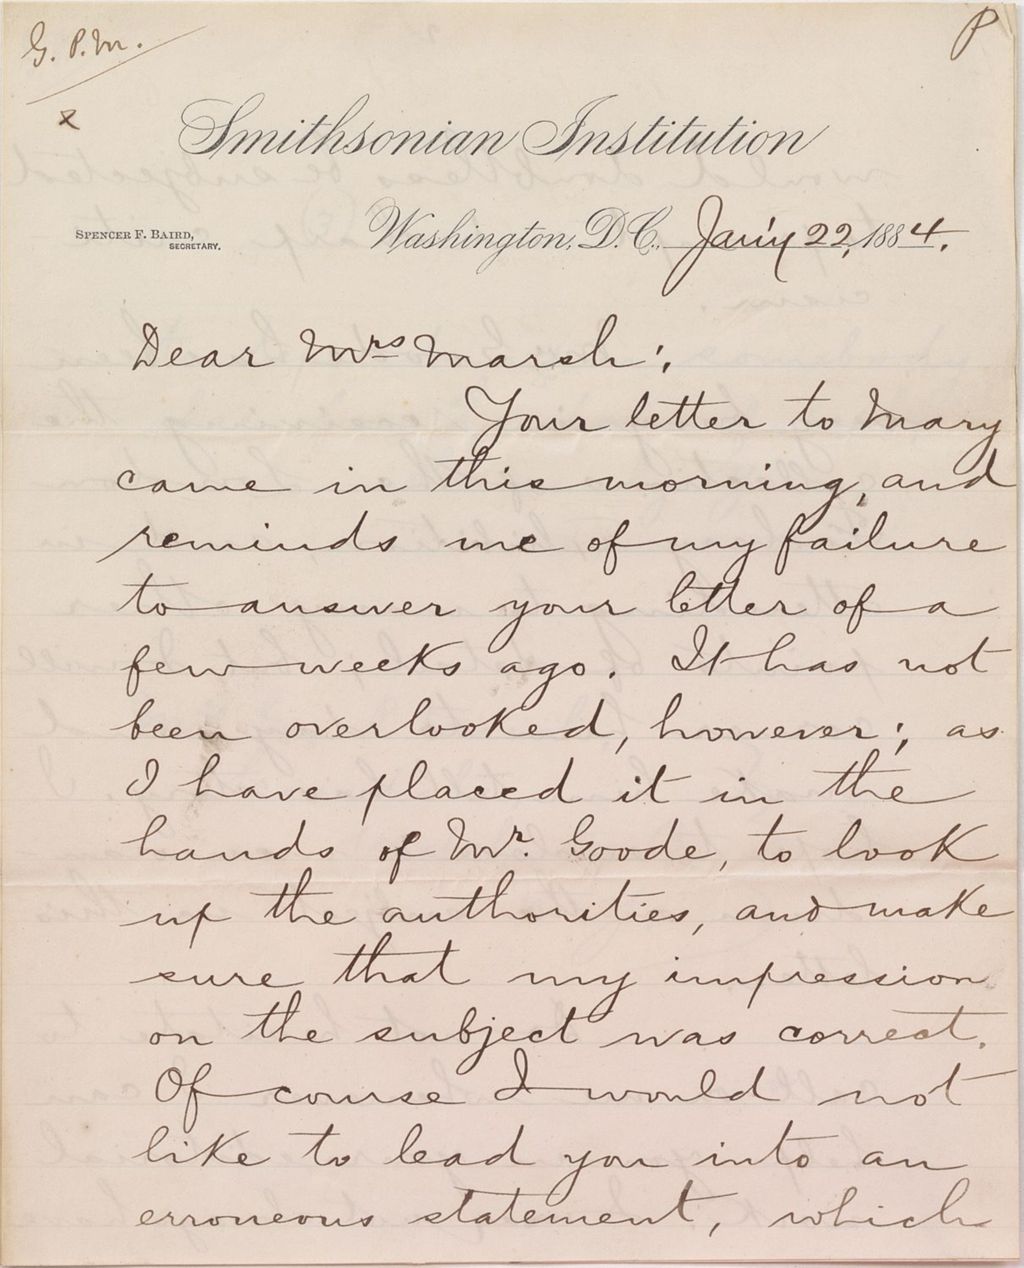 G. P. M.
P
x
Smithsonian Institution
SPENCER F. BAIRD,
SECRETARY.
Washington, D.C., Jan'y 22, 1884.
Dear Mrs Marsh:
Your letter to Mary
came in this morning, and
reminds me of my failure
to answer your letter of a
few weeks ago. It has not
been overlooked, however; as
I have placed it in the
hands of Mr. Goode, to look
up the authorities, and make
sure that my impression
on the subject was correct.
Of course I would not
like to lead you into an
erroneous statement, which